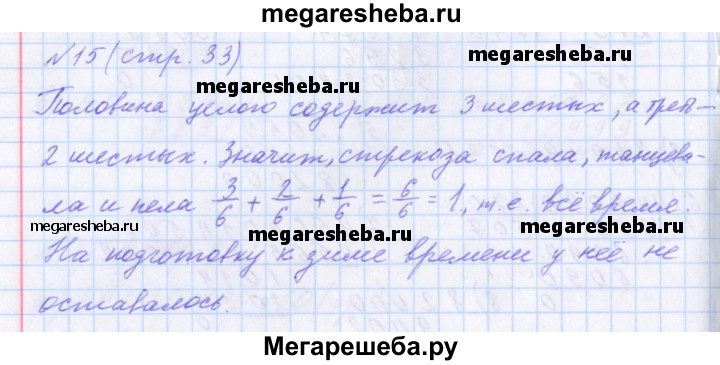 megaresheba.ru
№15 (стр. 33)
megaresheba.ru
Половина целого содержит 3 шестых, а треть –
2 шестых. Значит, стрекоза спала, танцева-
ла и пела 3/6 + 2/6 + 1/6 = 6/6 = 1, т.е. всё время.
megaresheba.ru
megaresheba.ru
На подготовку к зиме времени у неё не
оставалось.
Мегарешеба.ру